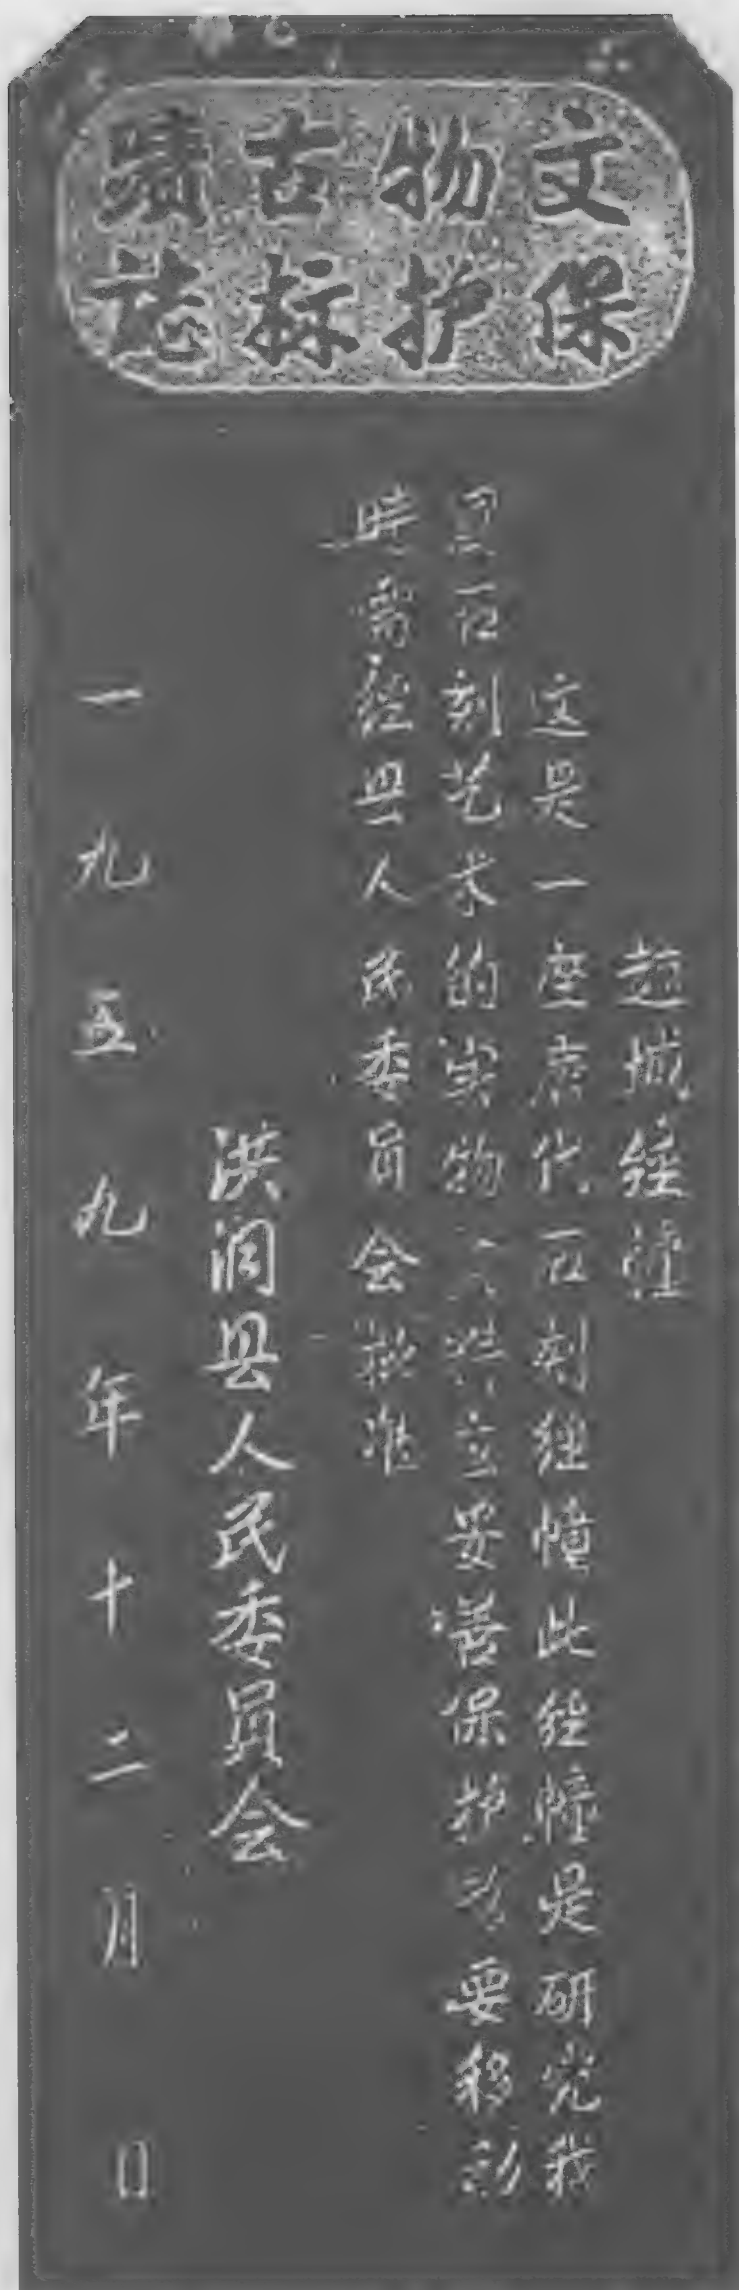 文物古蹟
保护标誌
赵城经幢
这是一座唐代石刻经幢此经幢是研究我
国石刻艺术的实物 特立妥善保护若要移动
时需经县人民委员会批准
洪洞县人民委员会
一九五九年十二月 日